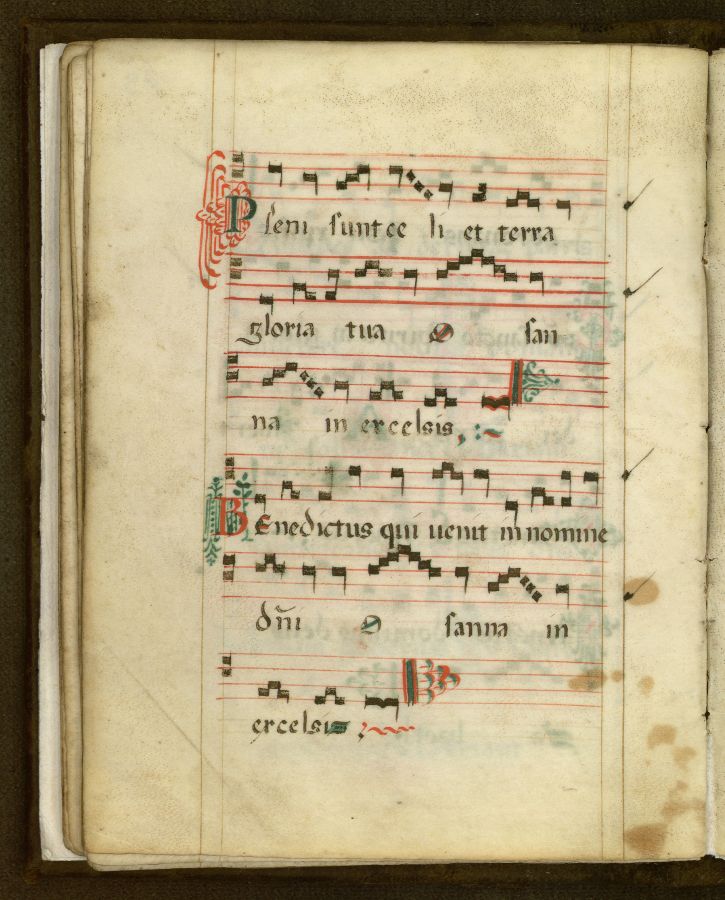 Pleni sunt ce li et terra
gloria tua O san
na in excelsis
Benedictus qui uenit in nomine
dñi O sanna in
excelsis